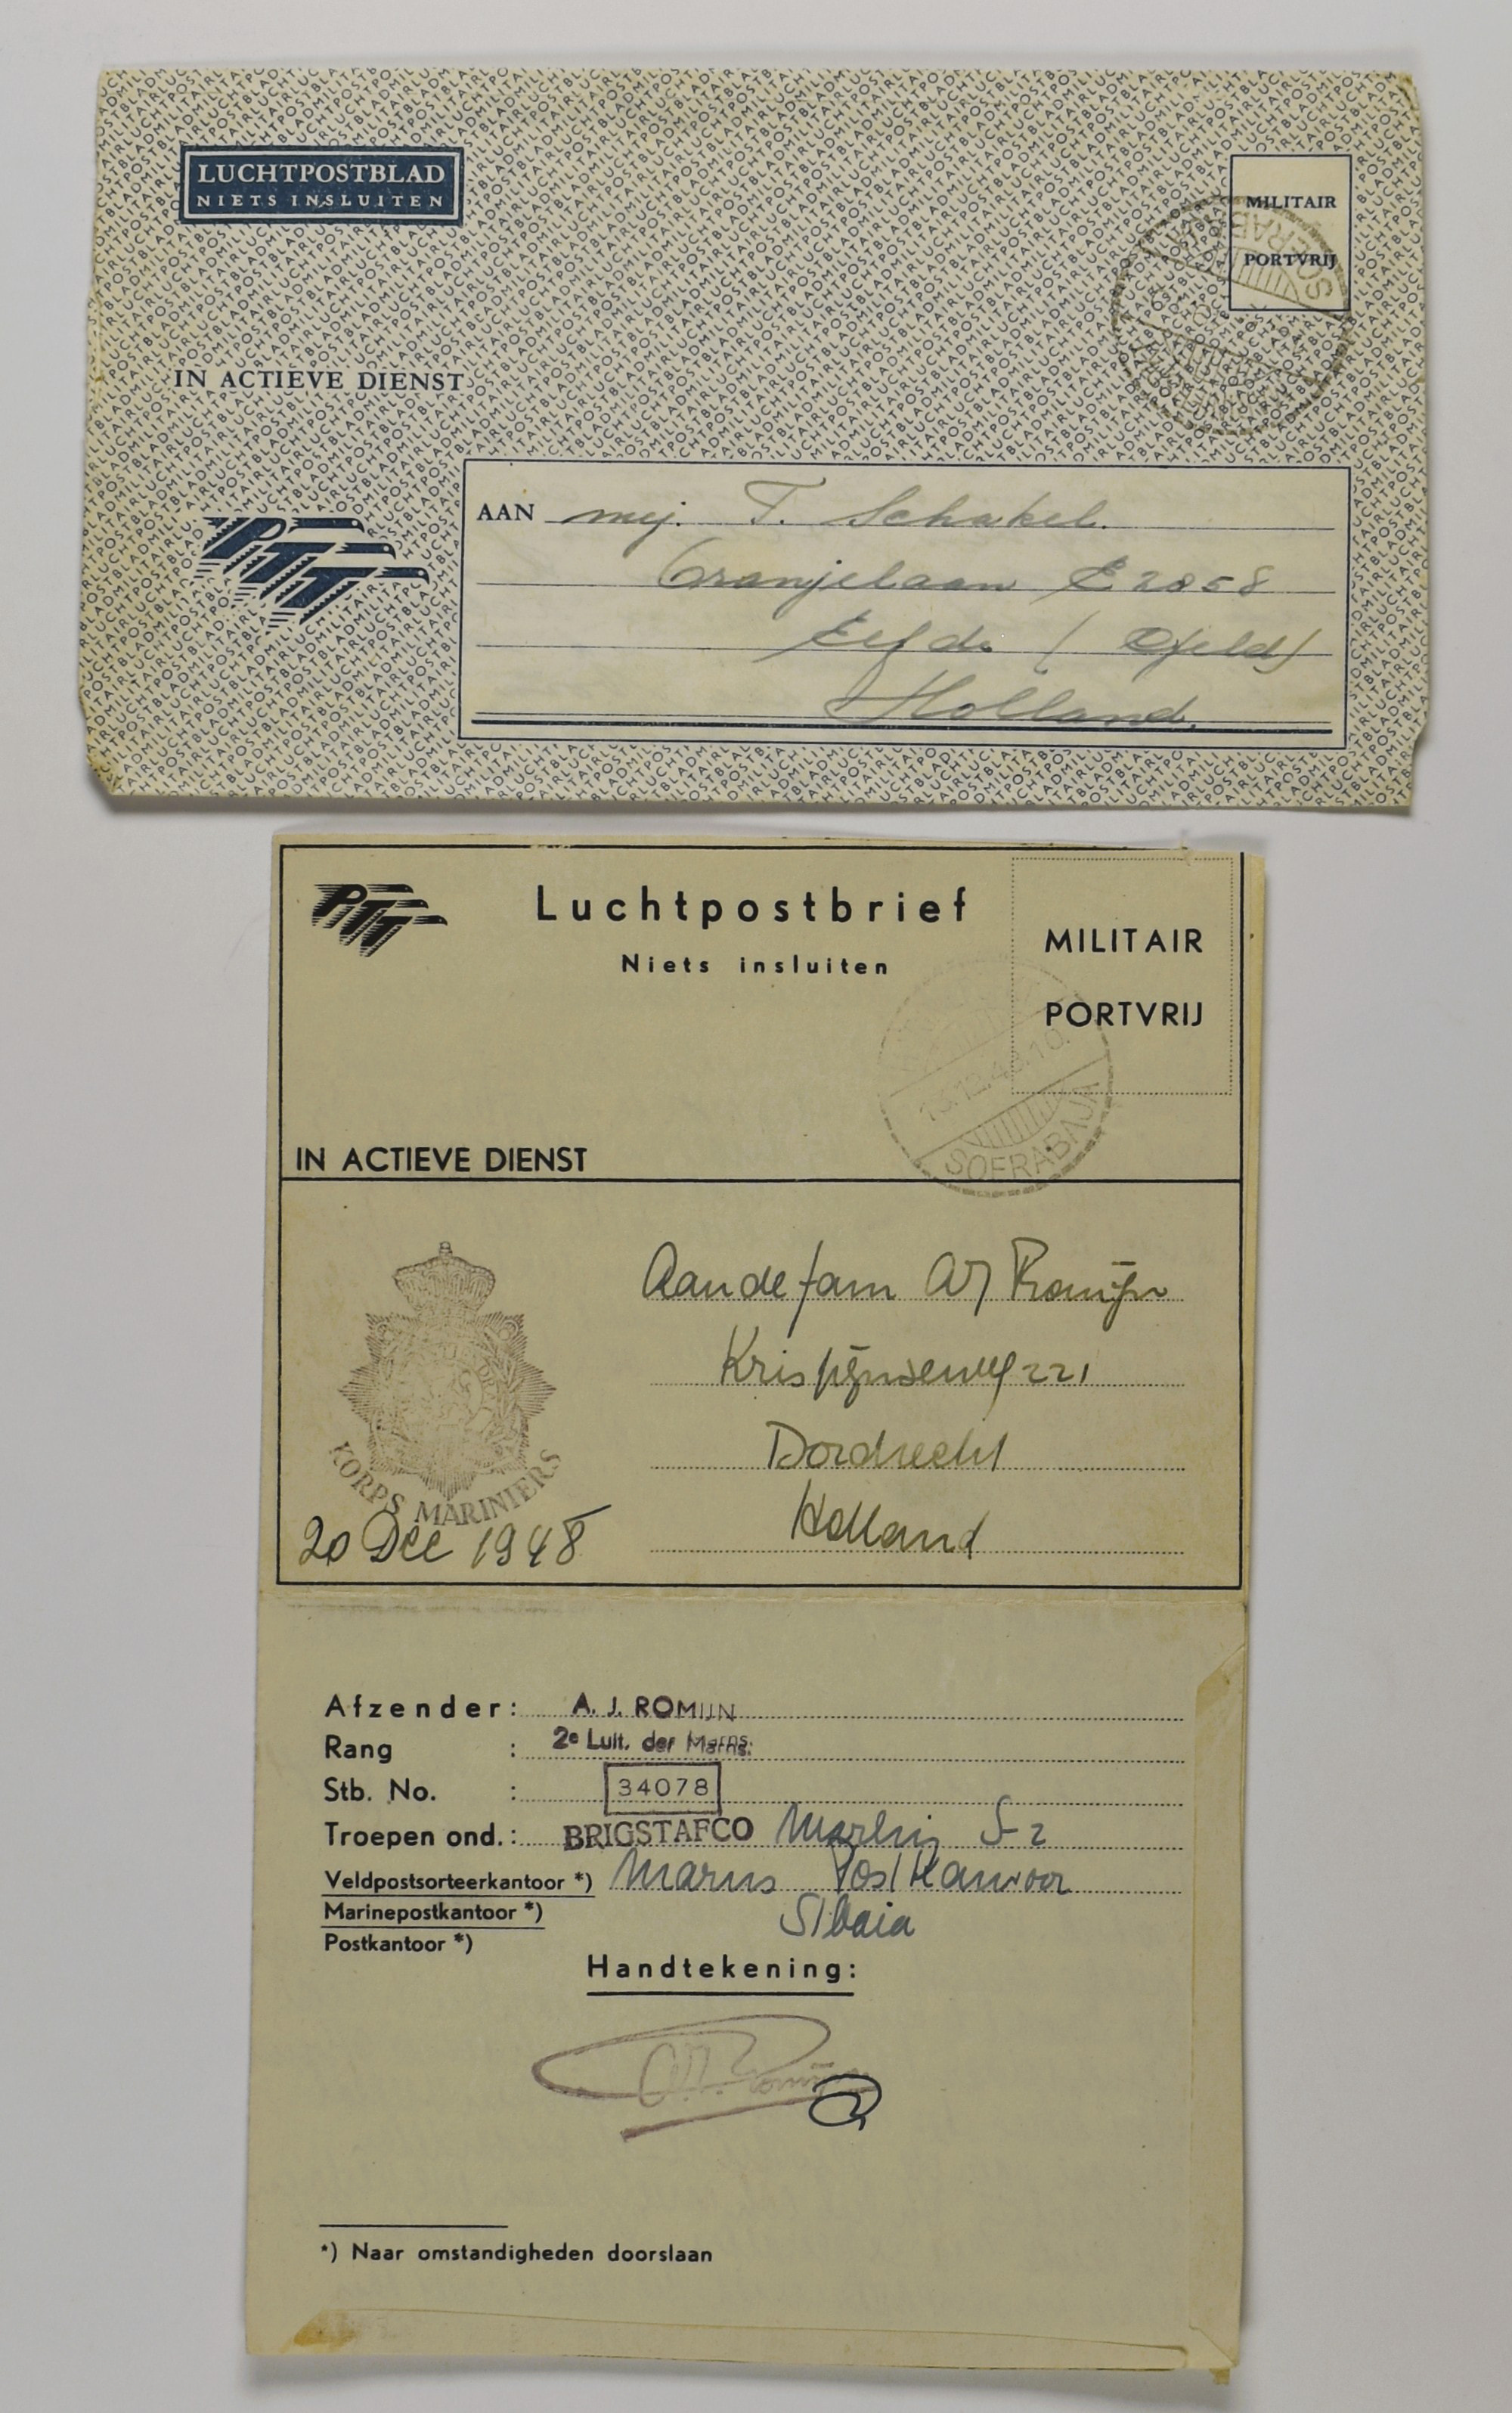 LUCHTPOSTBLAD
NIETS INSLUITEN
MILITAIR
PORTVRIJ
IN ACTIEVE DIENST
PTT
AAN mej. T. Schakel.
Oranjelaan E 2058
Holland.
PTT
Luchtpostbrief
Niets insluiten
MILITAIR
PORTVRIJ
SOERABAJA
IN ACTIEVE DIENST
Aan de fam AJ Romijn
Krispijnseweg 221
Dordrecht
Holland
KORPS MARINIERS
20 Dec 1948
Afzender: A. J. ROMIJN
Rang : 2e Luit. der Marns.
Stb. No. : 34078
Troepen ond.: BRIGSTAFCO S-2
Veldpostsorteerkantoor *) Marns Postkantoor
Marinepostkantoor *) S/baia
Postkantoor *)
Handtekening:
*) Naar omstandigheden doorslaan